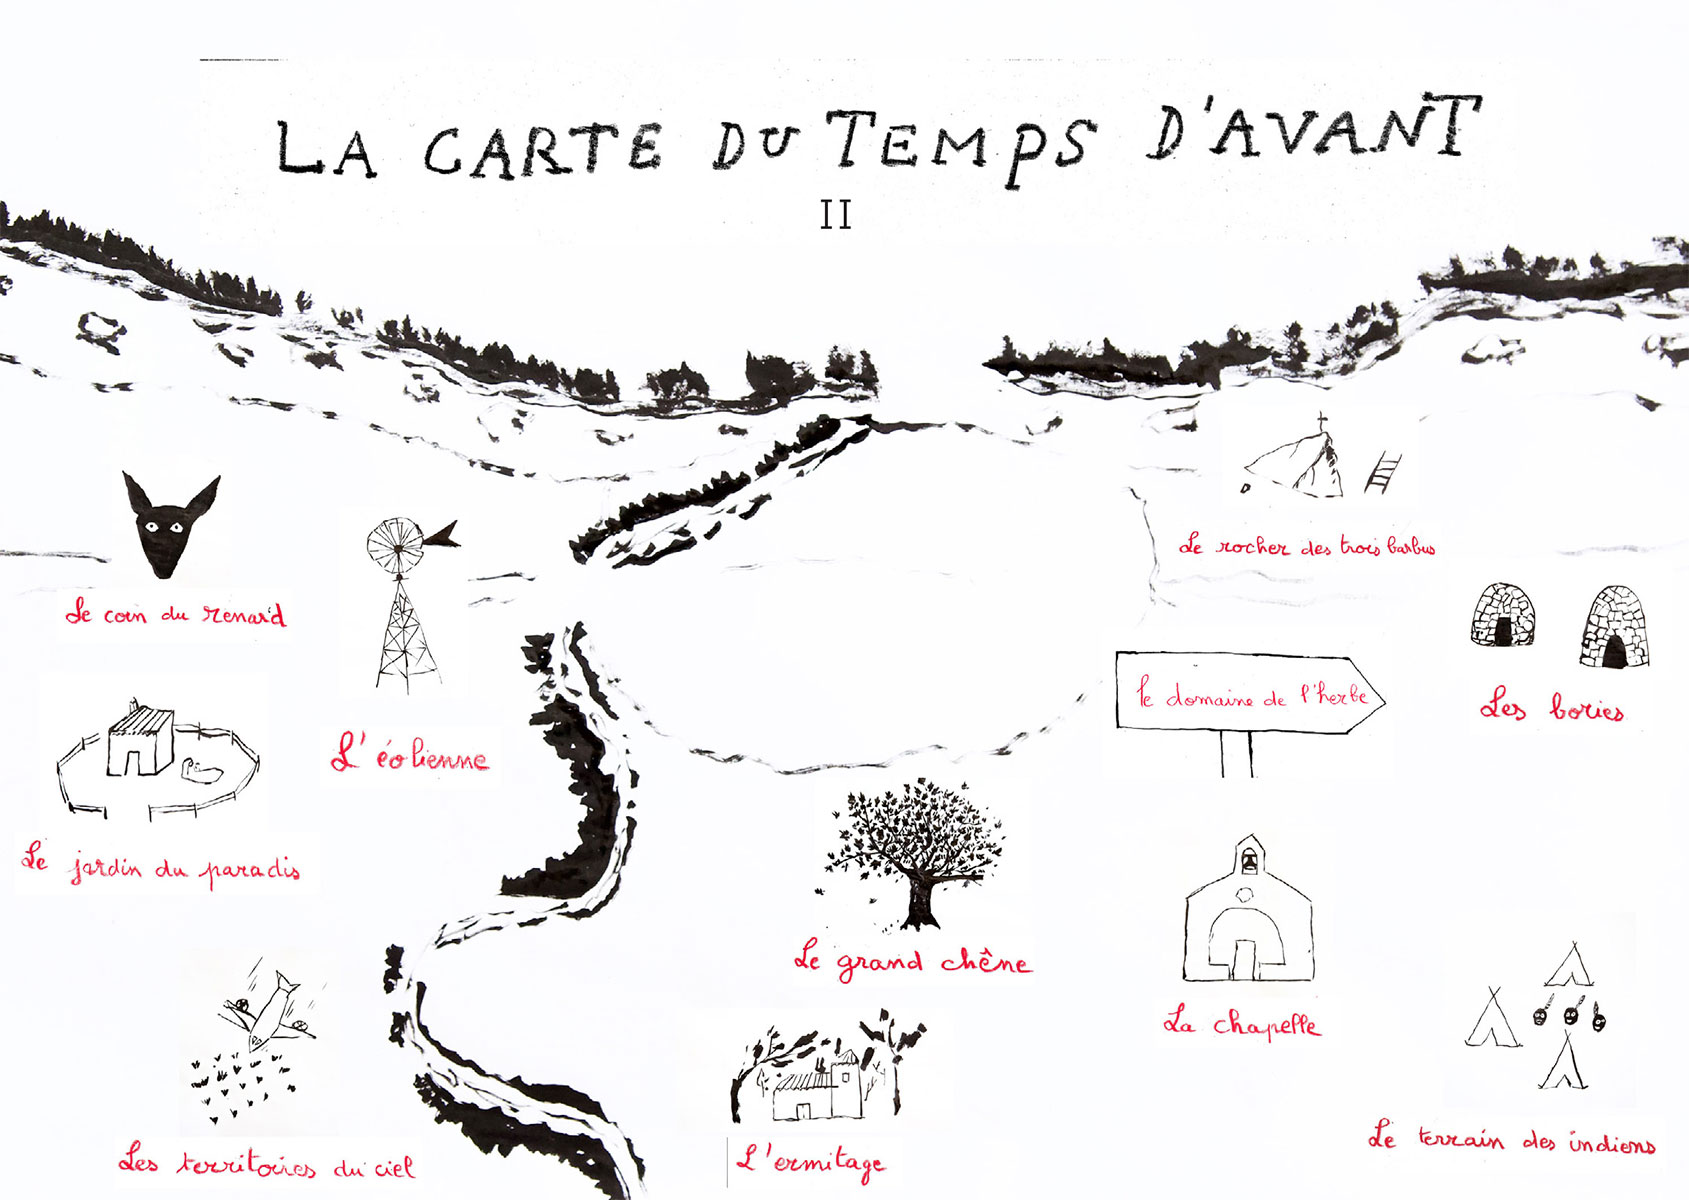 LA CARTE DU TEMPS D'AVANT
II
Le rocher des trois barbus
Le coin du renard
Le domaine de l'herbe
Les bories
L'éolienne
Le jardin du paradis
Le grand chêne
La chapelle
Le terrain des indiens
Les territoires du ciel
L'ermitage